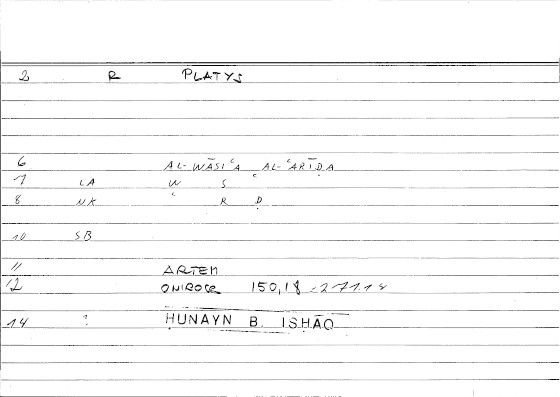 2 R PLATYS
6 AL-WĀSIʿA AL-ʿARĪḌA
7 LA W S ʿ
8 NK ʿ R Ḍ
10 SB
11 ARTEM
12 ONIROCR 150,18 - 271.14
14 ? ḤUNAYN B. ISḤĀQ